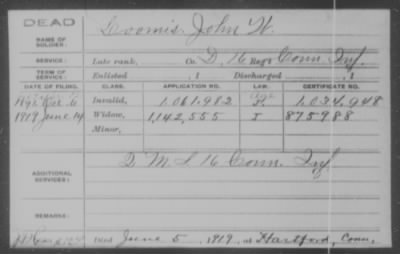 DEAD
NAME OF SOLDIER: Loomis, John W.
SERVICE: Late rank, Co. D, 16 Reg't Conn. Inf.
TERM OF SERVICE: Enlisted , 1 Discharged , 1
DATE OF FILING. CLASS. APPLICATION NO. LAW. CERTIFICATE NO.
Invalid, 1,061,982 1,034,948
1919 June 14 Widow, 1,142,555 I 875988
Minor,
ADDITIONAL SERVICES: 2 M. S. 16 Conn. Inf.
REMARKS:
Died June 5, 1919, at Hartford, Conn.